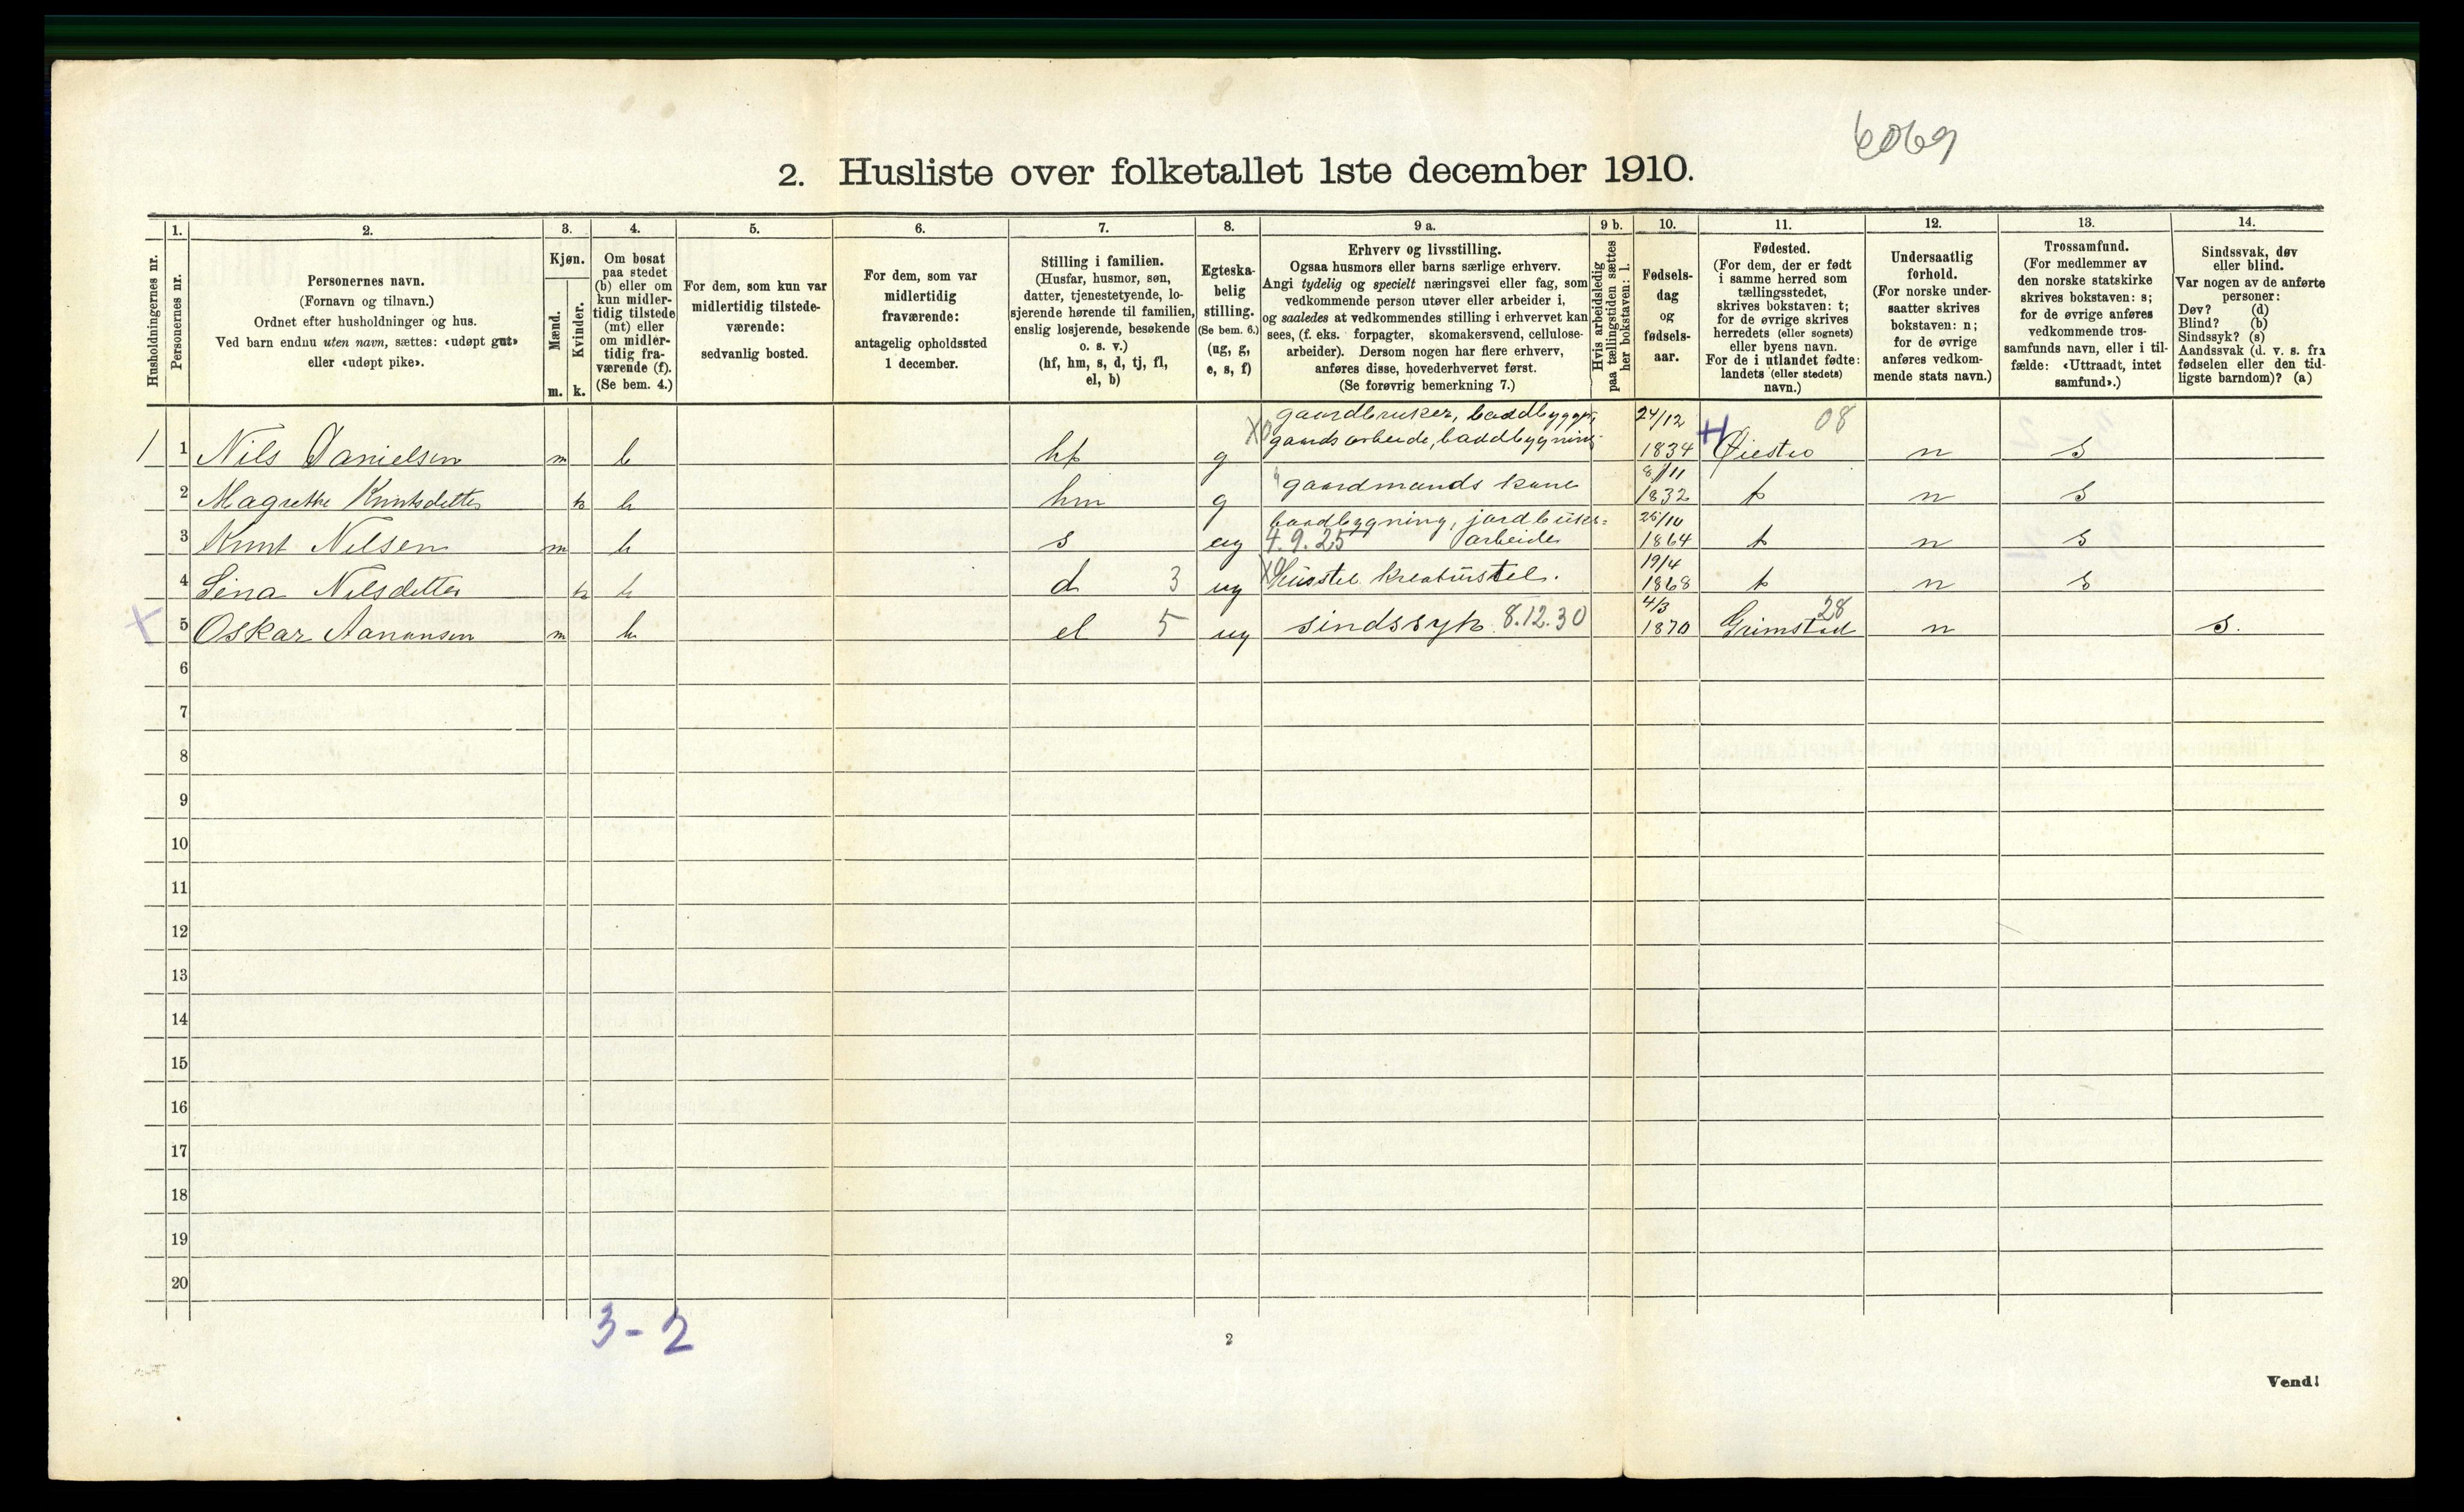 6069
2. Husliste over folketallet 1ste december 1910.
Husholdningernes nr.
1.
Personernes nr.
2.
Personernes navn.
(Fornavn og tilnavn.)
Ordnet efter husholdninger og hus.
Ved barn endnu uten navn, sættes: «udøpt gut»
eller «udøpt pike».
3.
Kjøn.
Mænd.
Kvinder.
m. k.
4.
Om bosat
paa stedet
(b) eller om
kun midler-
tidig tilstede
(mt) eller
om midler-
tidig fra-
værende (f).
(Se bem. 4.)
5.
For dem, som kun var
midlertidig tilstede-
værende:
sedvanlig bosted.
6.
For dem, som var
midlertidig
fraværende:
antagelig opholdssted
1 december.
7.
Stilling i familien.
(Husfar, husmor, søn,
datter, tjenestetyende, lo-
sjerende hørende til familien,
enslig losjerende, besøkende
o. s. v.)
(hf, hm, s, d, tj, fl,
el, b)
8.
Egteska-
belig
stilling.
(Se bem. 6.)
(ug, g,
e, s, f)
9 a.
Erhverv og livsstilling.
Ogsaa husmors eller barns særlige erhverv.
Angi tydelig og specielt næringsvei eller fag, som
vedkommende person utøver eller arbeider i,
og saaledes at vedkommendes stilling i erhvervet kan
sees, (f. eks. forpagter, skomakersvend, cellulose-
arbeider). Dersom nogen har flere erhverv,
anføres disse, hovederhvervet først.
(Se forøvrig bemerkning 7.)
9 b.
Hvis arbeidsledig
paa tællingstiden sættes
her bokstaven: l.
10.
Fødsels-
dag
og
fødsels-
aar.
11.
Fødested.
(For dem, der er født
i samme herred som
tællingsstedet,
skrives bokstaven: t;
for de øvrige skrives
herredets (eller sognets)
eller byens navn.
For de i utlandet fødte:
landets (eller stedets)
navn.)
12.
Undersaatlig
forhold.
(For norske under-
saatter skrives
bokstaven: n;
for de øvrige
anføres vedkom-
mende stats navn.)
13.
Trossamfund.
(For medlemmer av
den norske statskirke
skrives bokstaven: s;
for de øvrige anføres
vedkommende tros-
samfunds navn, eller i til-
fælde: «Uttraadt, intet
samfund».)
14.
Sindssvak, døv
eller blind.
Var nogen av de anførte
personer:
Døv? (d)
Blind? (b)
Sindssyk? (s)
Aandssvak (d. v. s. fra
fødselen eller den tid-
ligste barndom)? (a)
gaardbruker, baadbyggr, 24/12 08
1 1 Nils Danielsen m b hf g X0 gaardsarbeide, baadbygning 1834 Øiestad n s
8/11
2 Magrethe Knutsdatter k b hm g gaardmands kone 1832 t n s
baadbygning, jordbruks= 25/10
3 Knut Nilsen m b s ug 4.9.25 arbeide 1864 t n s
19/4
4 Lina Nilsdatter k b d 3 ug X0 Husstel kreaturstel. 1868 t n s
4/3 28
5 Oskar Aanonsen m b el 5 ug sindssyk 8.12.30 1870 Grimstad n s.
6
7
8
9
10
11
12
13
14
15
16
17
18
19
20
3 - 2
2
Vend!